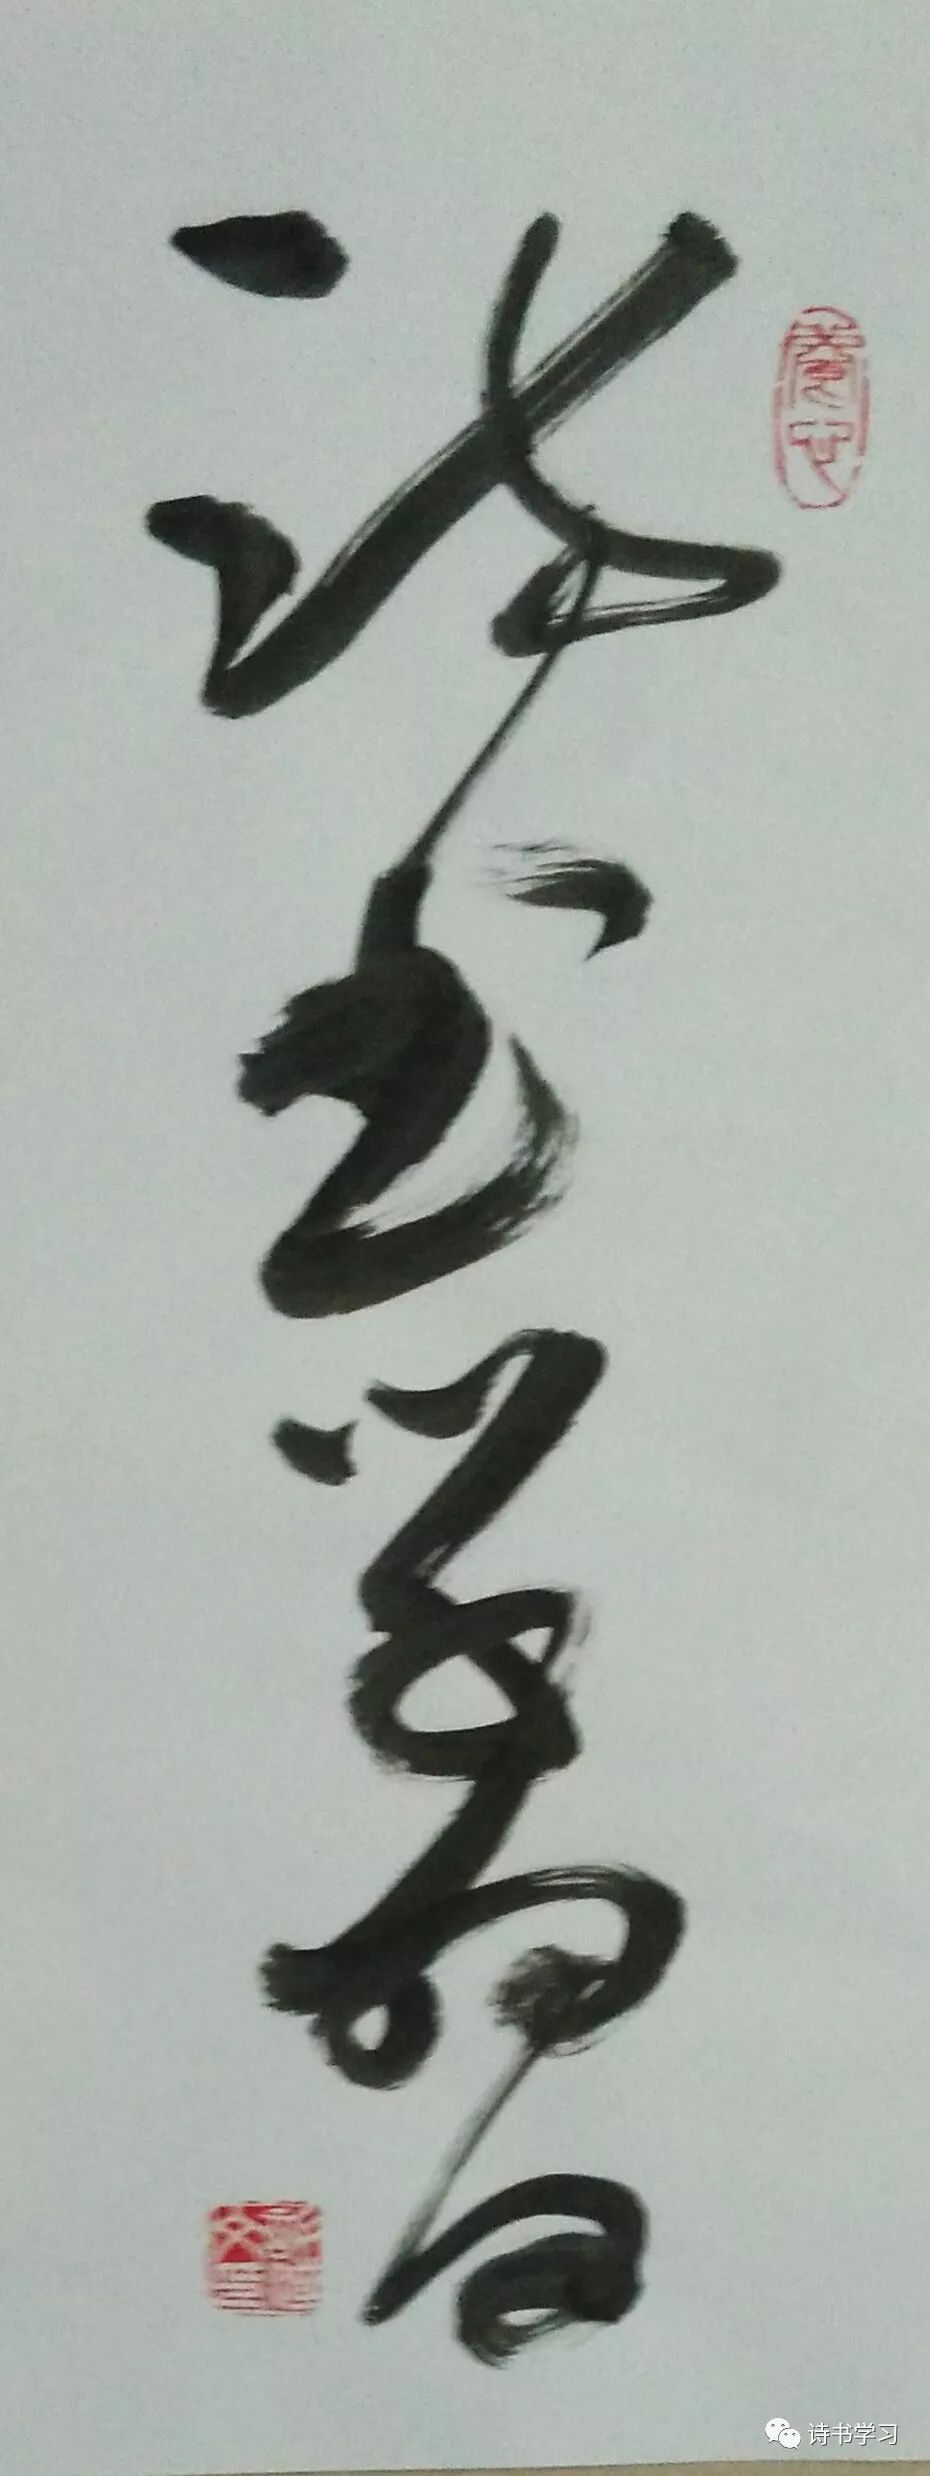 诗书学习
诗书学习